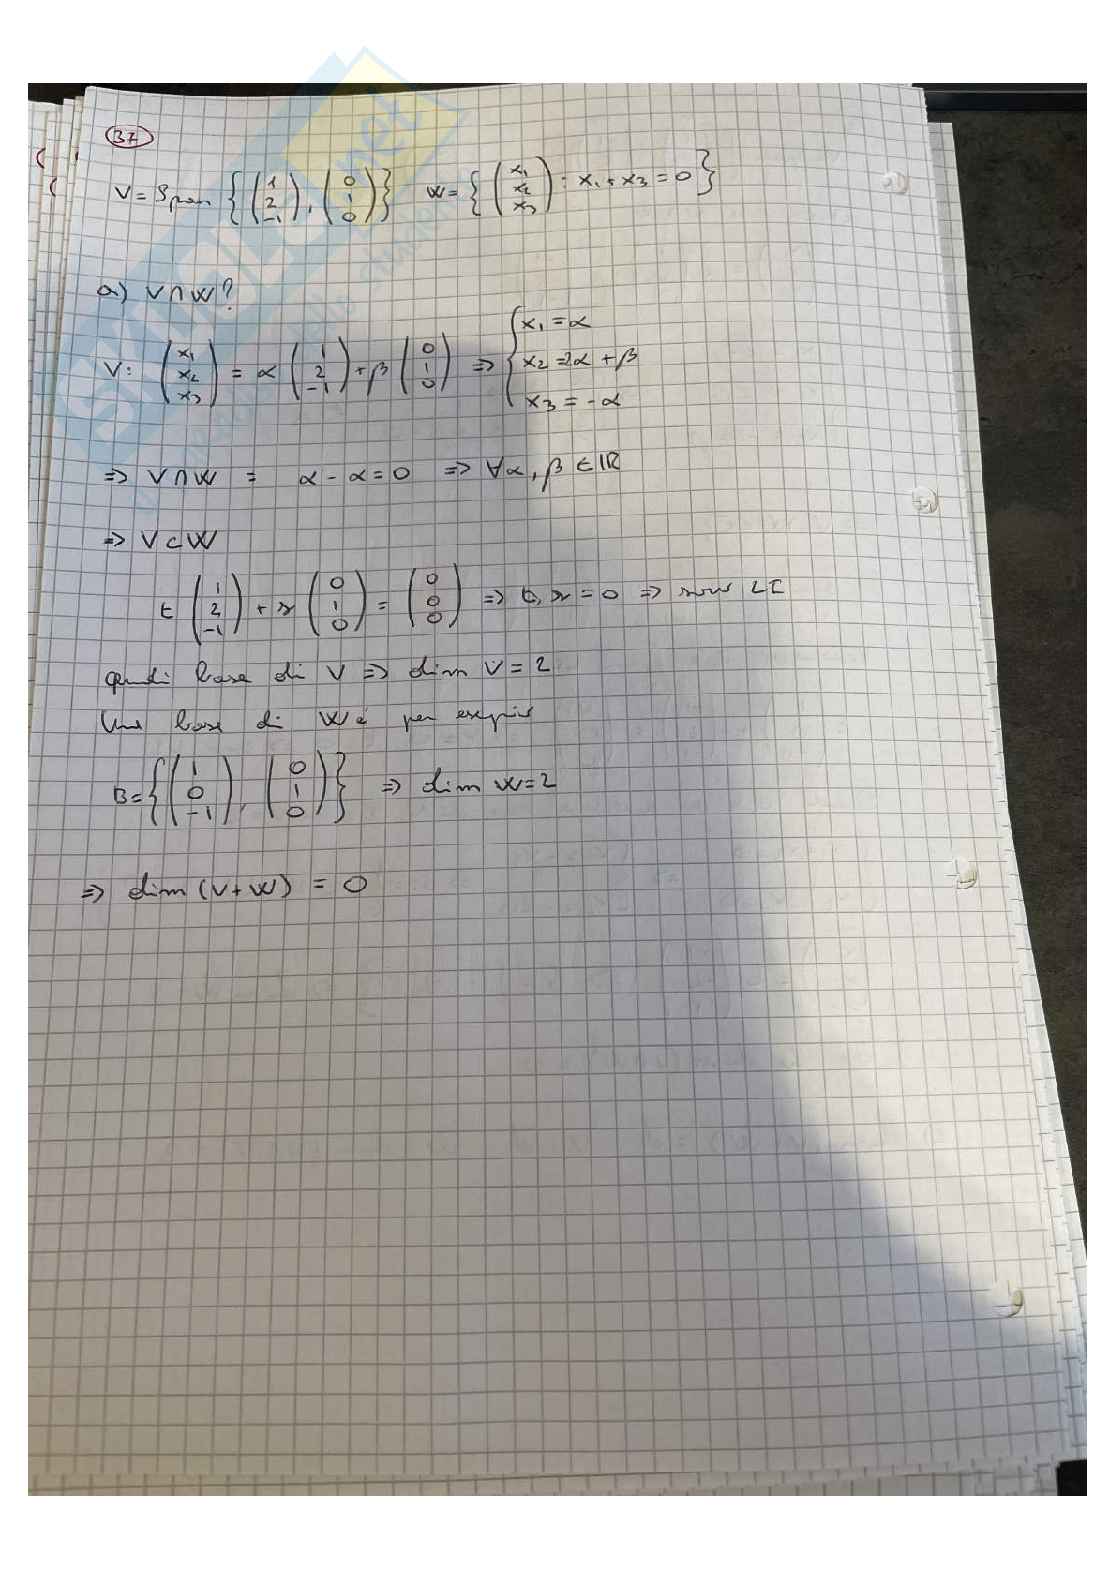 37
V = Span {(1 2 -1), (0 1 0)} W = {(x1 x2 x3) : x1 + x3 = 0}
a) V ∩ W?
V: (x1 x2 x3) = α (1 2 -1) + β (0 1 0) => { x1 = α
x2 = 2α + β
x3 = -α
=> V ∩ W = α - α = 0 => ∀α, β ∈ ℝ
=> V ⊂ W
t (1 2 -1) + r (0 1 0) = (0 0 0) => t, r = 0 => sono LI
quindi base di V => dim V = 2
Una base di W è per esempio
B = {(1 0 -1), (0 1 0)} => dim W = 2
=> dim (V + W) = 0
SKUOLA.net